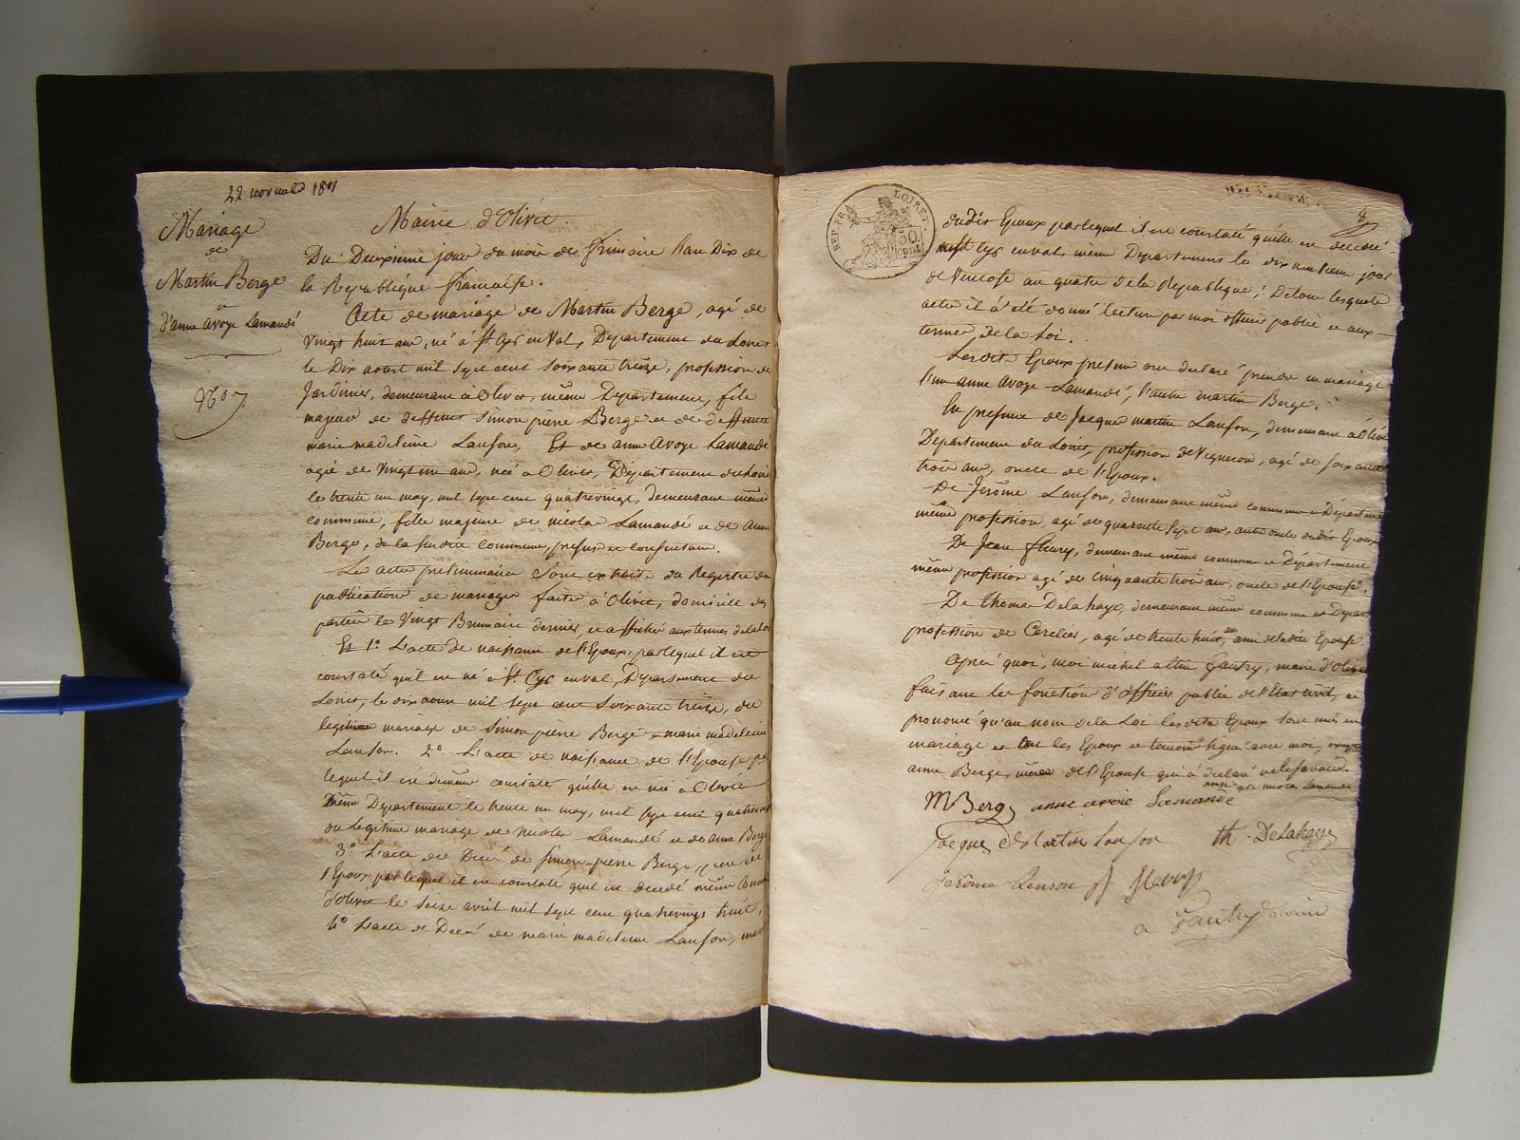 22 novembre 1801
Mariage
de
Martin Berge
&
d'anne avoye Lamandé
N.° 7.
Mairie d'Olivet.
Du Deuxieme jour du mois de frimaire l'an Dix de
la République française.
Acte de mariage de Martin Berge, agé de
vingt huit ans, né à St Cyr en Val, Département du Loiret
le Dix aoust mil sept cent soixante treize, profession de
Jardinier, demeurant à Olivet, même Departement, fils
majeur de deffunt Simon pierre Berge et de deffunte
marie madeleine Lanson, Et de anne avoye Lamandé
agée de vingt un ans, née à Olivet, Département du Loiret
le trente un may, mil sept cent quatrevingt, demeurant même
commune, fille majeure de nicolas Lamandé et de anne
Berge, de la susdite commune, presens et consentans.
Les actes preliminaires sont extraits du Registre des
publications de mariages faite à Olivet, domicile des
parties le vingt Brumaire dernier, et affiché aux termes de la loi
Et 1.° L'acte de naissance de l'Epoux, par lequel il est
constaté qu'il est né à St Cyr en val, Département du
Loiret, le dix aoust mil sept cent soixante treize, du
legitime mariage de Simon pierre Berge et marie madeleine
Lanson. 2.° L'acte de naissance de l'Epouse par
lequel il est de même constaté qu'elle est née à Olivet
même Département le trente un may, mil sept cent quatrevingt
du legitime mariage de Nicolas Lamandé et de anne Berge
3.° L'acte de Decès de Simon-pierre Berge, pere de
l'Epoux par lequel il est constaté qu'il est decedé même Commune
d'olivet le seize avril mil sept cent quatrevingt treize,
4.° L'acte de Decès de marie madeleine Lanson, mere
REP. FRA. LOIRET.
50
dudit Epoux par lequel il est constaté qu'elle est decedée
à St Cyr en val même Departement le dix neuvieme jour
de Ventose an quatre de la République; De tous lesquels
actes il a été donné lecture par moi officier public et aux
termes de la Loi.
Lesdits Epoux presens ont declaré prendre en mariage
l'un anne avoye Lamandé, l'autre martin Berge.
En presence de Jacques martin Lanson, demeurant à Olivet
Département du Loiret, profession de Vigneron, agé de soixante
trois ans, oncle de l'Epoux.
De Jerôme Lanson, demeurant même commune et Département
même profession, agé de quarante sept ans, aussi oncle dudit Epoux
De Jean fleury, demeurant même commune et Département
même profession agé de cinquante trois ans, oncle de l'Epouse.
De thomas Delahaye, demeurant même commune et Départ.
profession de Cerclier, agé de trente huit ans, ami de ladite Epouse
Après quoi, moi michel Gautry, maire d'Olivet
faisant les fonctions d'officier public de l'Etat civil, ai
prononcé qu'au nom de la Loi lesdits Epoux sont unis en
mariage et ont les Epoux et temoins signé avec moi, excepté
anne Berge, mere de l'Epouse qui a declaré ne le savoir.
M Berge anne avoie Lamandé
Jacques Martin Lanson th. Delahaye
Jerome Lanson J fleury
Gautry maire